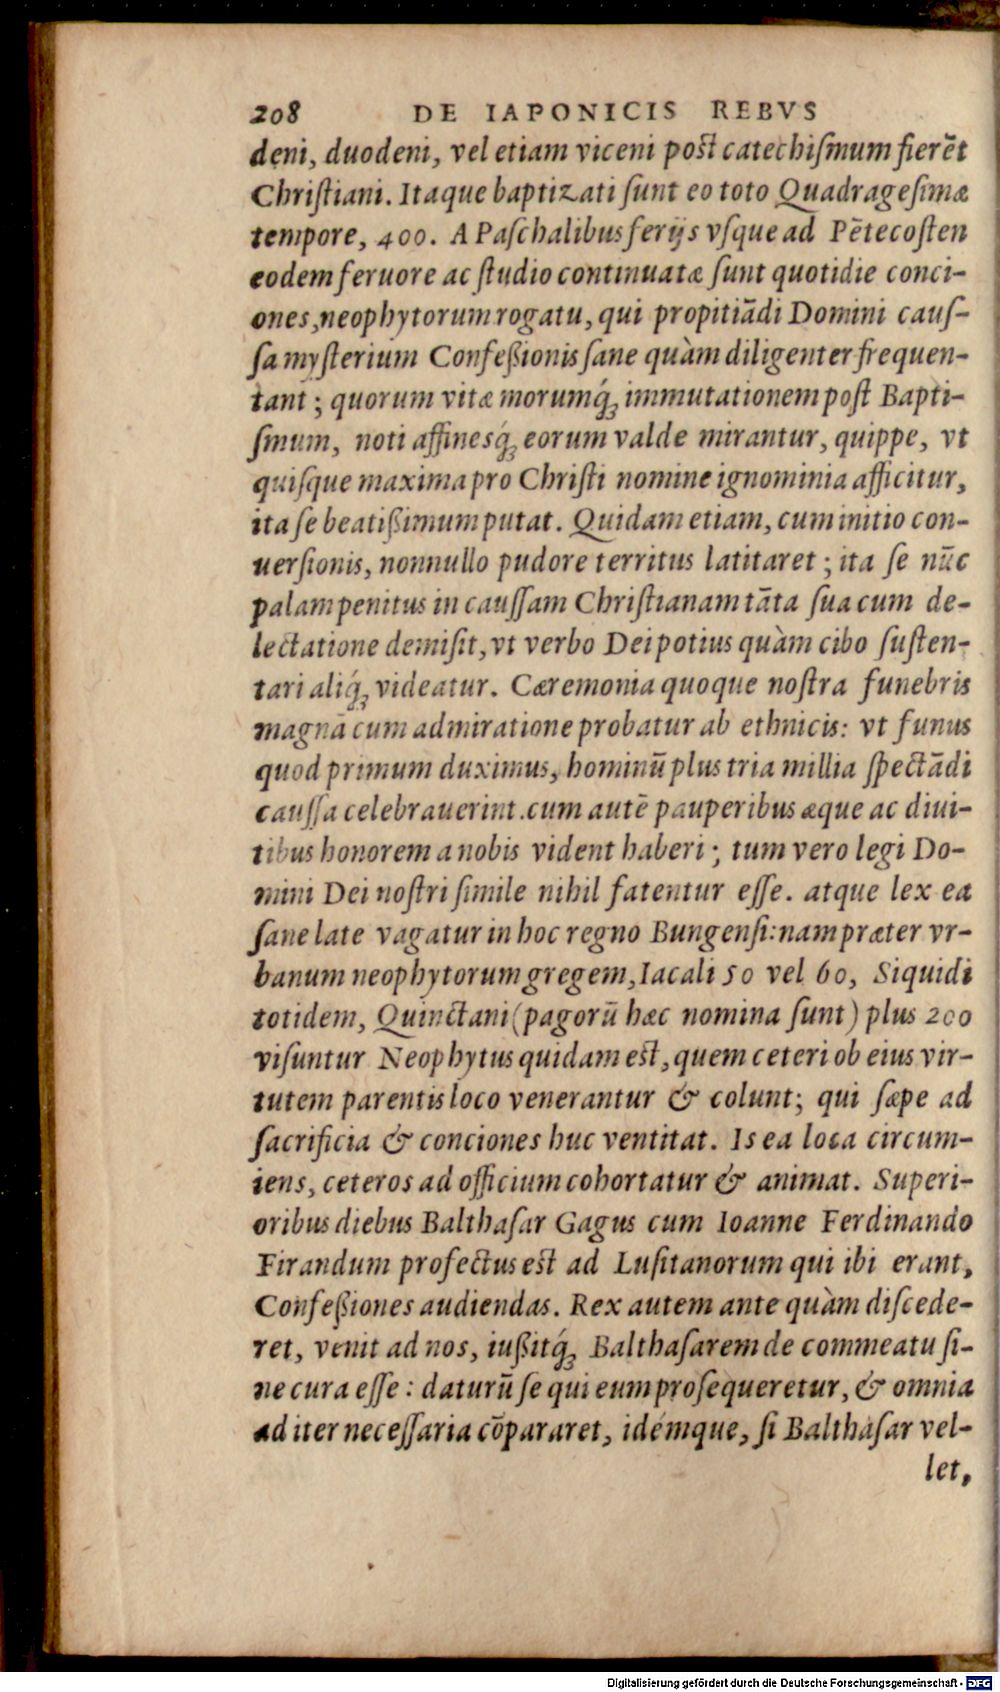 208 DE IAPONICIS REBVS
deni, duodeni, vel etiam viceni post catechiſmum fierēt
Chriſtiani. Itaque baptizati ſunt eo toto Quadrageſimæ
tempore, 400. A Paſchalibus ferijs vſque ad Pētecoſten
eodem feruore ac ſtudio continuatæ ſunt quotidie conci-
ones, neophytorum rogatu, qui propitiādi Domini cauſ-
ſa myſterium Confeßionis ſane quàm diligenter frequen-
tant; quorum vitæ morumq́ꝫ immutationem poſt Bapti-
ſmum, noti affinesq́ꝫ eorum valde mirantur, quippe, vt
quiſque maxima pro Chriſti nomine ignominia afficitur,
ita ſe beatißimum putat. Quidam etiam, cum initio con-
uerſionis, nonnullo pudore territus latitaret; ita ſe nūc
palam penitus in cauſſam Chriſtianam tāta ſua cum de-
lectatione demiſit, vt verbo Dei potius quàm cibo ſuſten-
tari aliq́ꝫ videatur. Cæremonia quoque noſtra funebris
magnā cum admiratione probatur ab ethnicis: vt funus
quod primum duximus, hominū plus tria millia ſpectādi
cauſſa celebrauerint. cum autē pauperibus æque ac diui-
tibus honorem a nobis vident haberi; tum vero legi Do-
mini Dei noſtri ſimile nihil fatentur eſſe. atque lex ea
ſane late vagatur in hoc regno Bungenſi: nam præter vr-
banum neophytorum gregem, Iacali 50 vel 60, Siquidi
totidem, Quinctani (pagorū hæc nomina ſunt) plus 200
viſuntur Neophytus quidam est, quem ceteri ob eius vir-
tutem parentis loco venerantur & colunt; qui ſæpe ad
ſacrificia & conciones huc ventitat. Is ea loca circum-
iens, ceteros ad officium cohortatur & animat. Superi-
oribus diebus Balthaſar Gagus cum Ioanne Ferdinando
Firandum profectus est ad Luſitanorum qui ibi erant,
Confeßiones audiendas. Rex autem ante quàm diſcede-
ret, venit ad nos, iußitq́ꝫ Balthaſarem de commeatu ſi-
ne cura eſſe: daturū ſe qui eum proſequeretur, & omnia
ad iter neceſſaria cōpararet, idémque, ſi Balthaſar vel-
let,
Digitalisierung gefördert durch die Deutsche Forschungsgemeinschaft - DFG